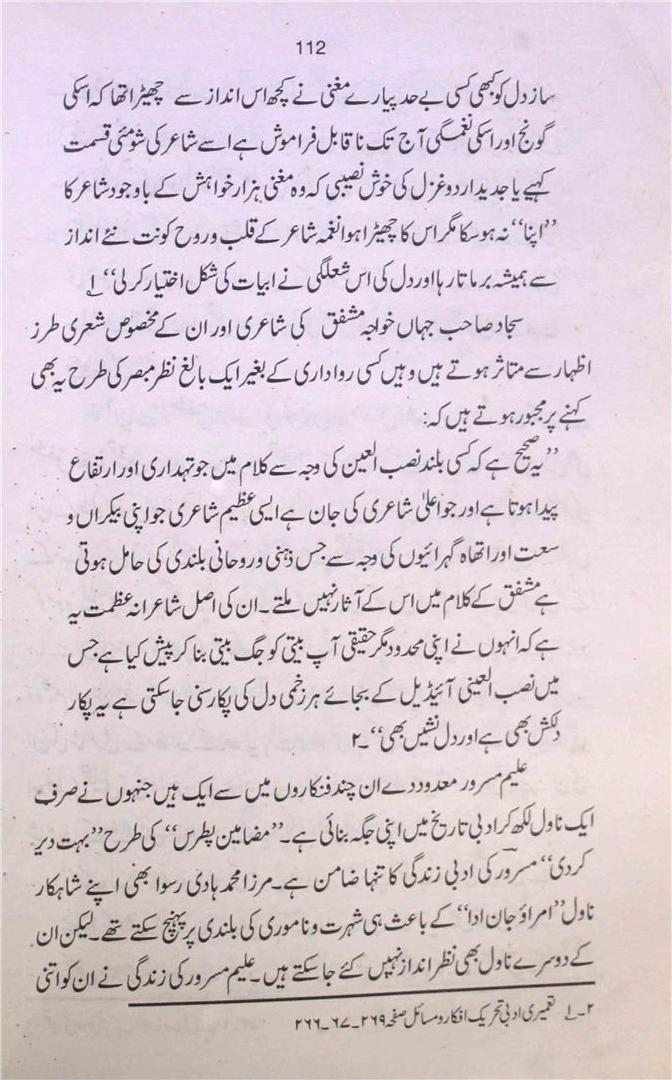 112
ساز دل کو کبھی کسی بے حد پیارے مغنی نے کچھ اس انداز سے چھیڑا تھا کہ اسکی
گونج اور اسکی نغمگی آج تک ناقابل فراموش ہے اسے شاعر کی شومئی قسمت
کہیے یا جدید اردو غزل کی خوش نصیبی کہ وہ مغنی ہزار خواہش کے باوجود شاعر کا
”اپنا“ نہ ہوسکا مگر اس کا چھیڑا ہوا نغمہ شاعر کے قلب و روح کو نت نئے انداز
سے ہمیشہ برماتا رہا اور دل کی اس شعلگی نے ابیات کی شکل اختیار کرلی“ ۱
سجاد صاحب جہاں خواجہ مشفق کی شاعری اور ان کے مخصوص شعری طرز
اظہار سے متاثر ہوتے ہیں وہیں کسی رواداری کے بغیر ایک بالغ نظر مبصر کی طرح یہ بھی
کہنے پر مجبور ہوتے ہیں کہ:
”یہ صحیح ہے کہ کسی بلند نصب العین کی وجہ سے کلام میں جو تہداری اور ارتفاع
پیدا ہوتا ہے اور جو اعلیٰ شاعری کی جان ہے ایسی عظیم شاعری جو اپنی بیکراں و
سعت اور اتھاہ گہرائیوں کی وجہ سے جس ذہنی و روحانی بلندی کی حامل ہوتی
ہے مشفق کے کلام میں اس کے آثار نہیں ملتے۔ ان کی اصل شاعرانہ عظمت یہ
ہے کہ انہوں نے اپنی محدود مگر حقیقی آپ بیتی کو جگ بیتی بنا کر پیش کیا ہے جس
میں نصب العینی آئیڈیل کے بجائے ہر زخمی دل کی پکار سنی جاسکتی ہے یہ پکار
دلکش بھی ہے اور دل نشیں بھی“۔۲
علیم مسرور معدودے ان چند فنکاروں میں سے ایک ہیں جنہوں نے صرف
ایک ناول لکھ کر ادبی تاریخ میں اپنی جگہ بنائی ہے۔ ”مضامین پطرس“ کی طرح ”بہت دیر
کردی“ مسرور کی ادبی زندگی کا تنہا ضامن ہے۔ مرزا محمد ہادی رسوا بھی اپنے شاہکار
ناول ”امراؤ جان ادا“ کے باعث ہی شہرت و ناموری کی بلندی پر پہنچ سکتے تھے۔ لیکن ان
کے دوسرے ناول بھی نظر انداز نہیں کئے جاسکتے ہیں۔ علیم مسرور کی زندگی نے ان کو اتنی
۲۔۱ تعمیری ادبی تحریک افکار و مسائل صفحہ ۲۶۹۔۶۷۔۲۶۶